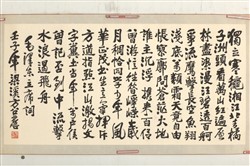 獨立寒穐湘江北去橘
子洲頭看萬山紅遍層
林盡染漫江碧透百舸
爭流鷹擊長空魚翔
淺底萬類霜天競自由
悵寥廓問蒼茫大地
誰主沉浮携來百侣
曾游憶往昔崢嶸歲
月稠恰同學少年風
華正茂書生意氣揮斥
方遒指點江山激揚文
字糞土當年萬户侯
曾記否到中流擊
水浪遏飛舟
毛澤東主席詞
壬子年